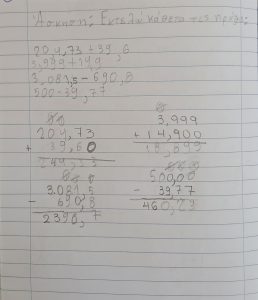 Άσκηση: Εκτελώ κάθετα τις πράξεις
204,73 + 39,6
3,999 + 14,9
3.081,5 - 690,8
500 - 39,77
204,73
+ 39,60
3,999
+ 14,900
18,899
3.081,5
- 690,8
2390,7
500,00
- 39,77
460,23